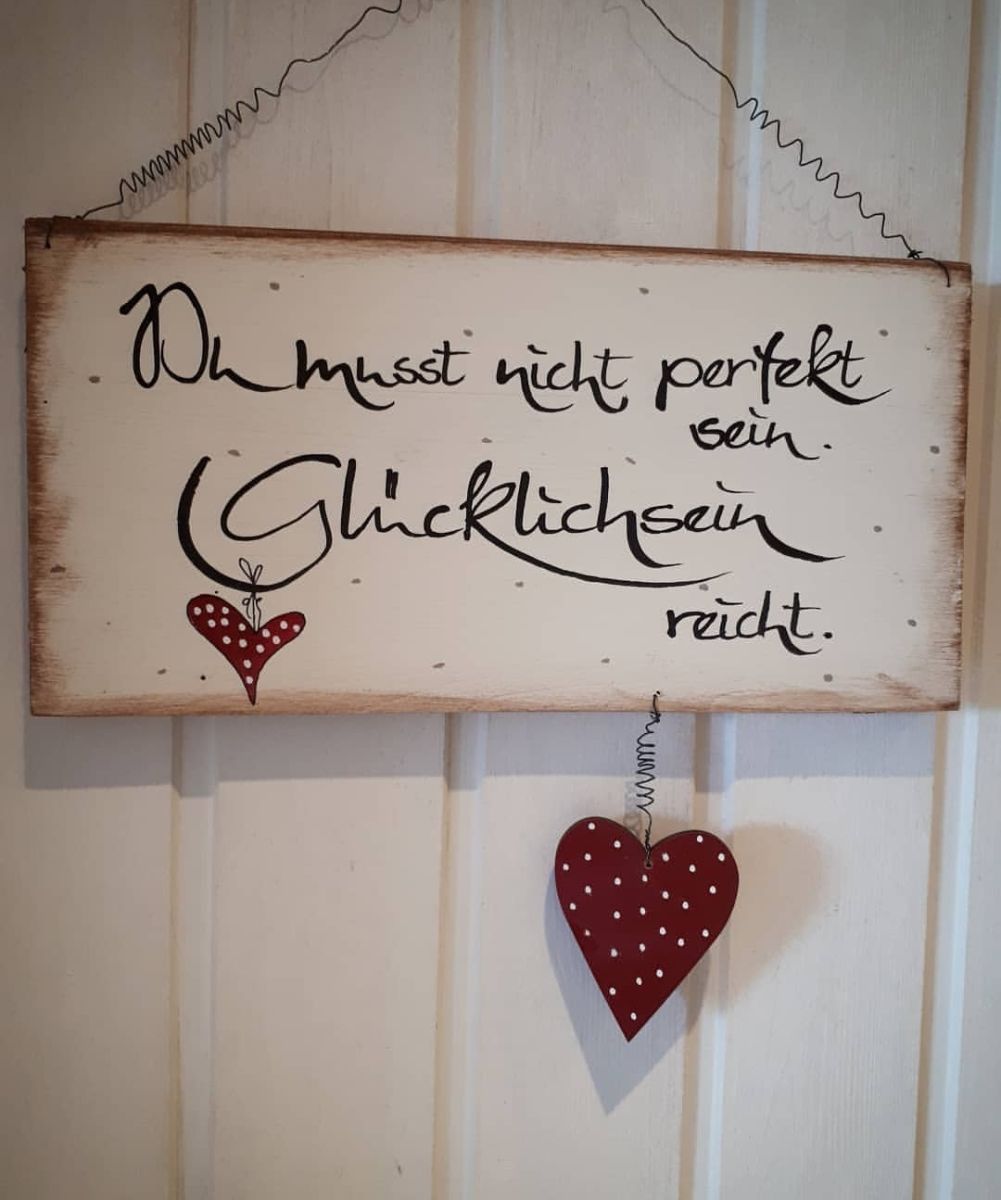 Du musst nicht perfekt
sein.
Glücklichsein
reicht.